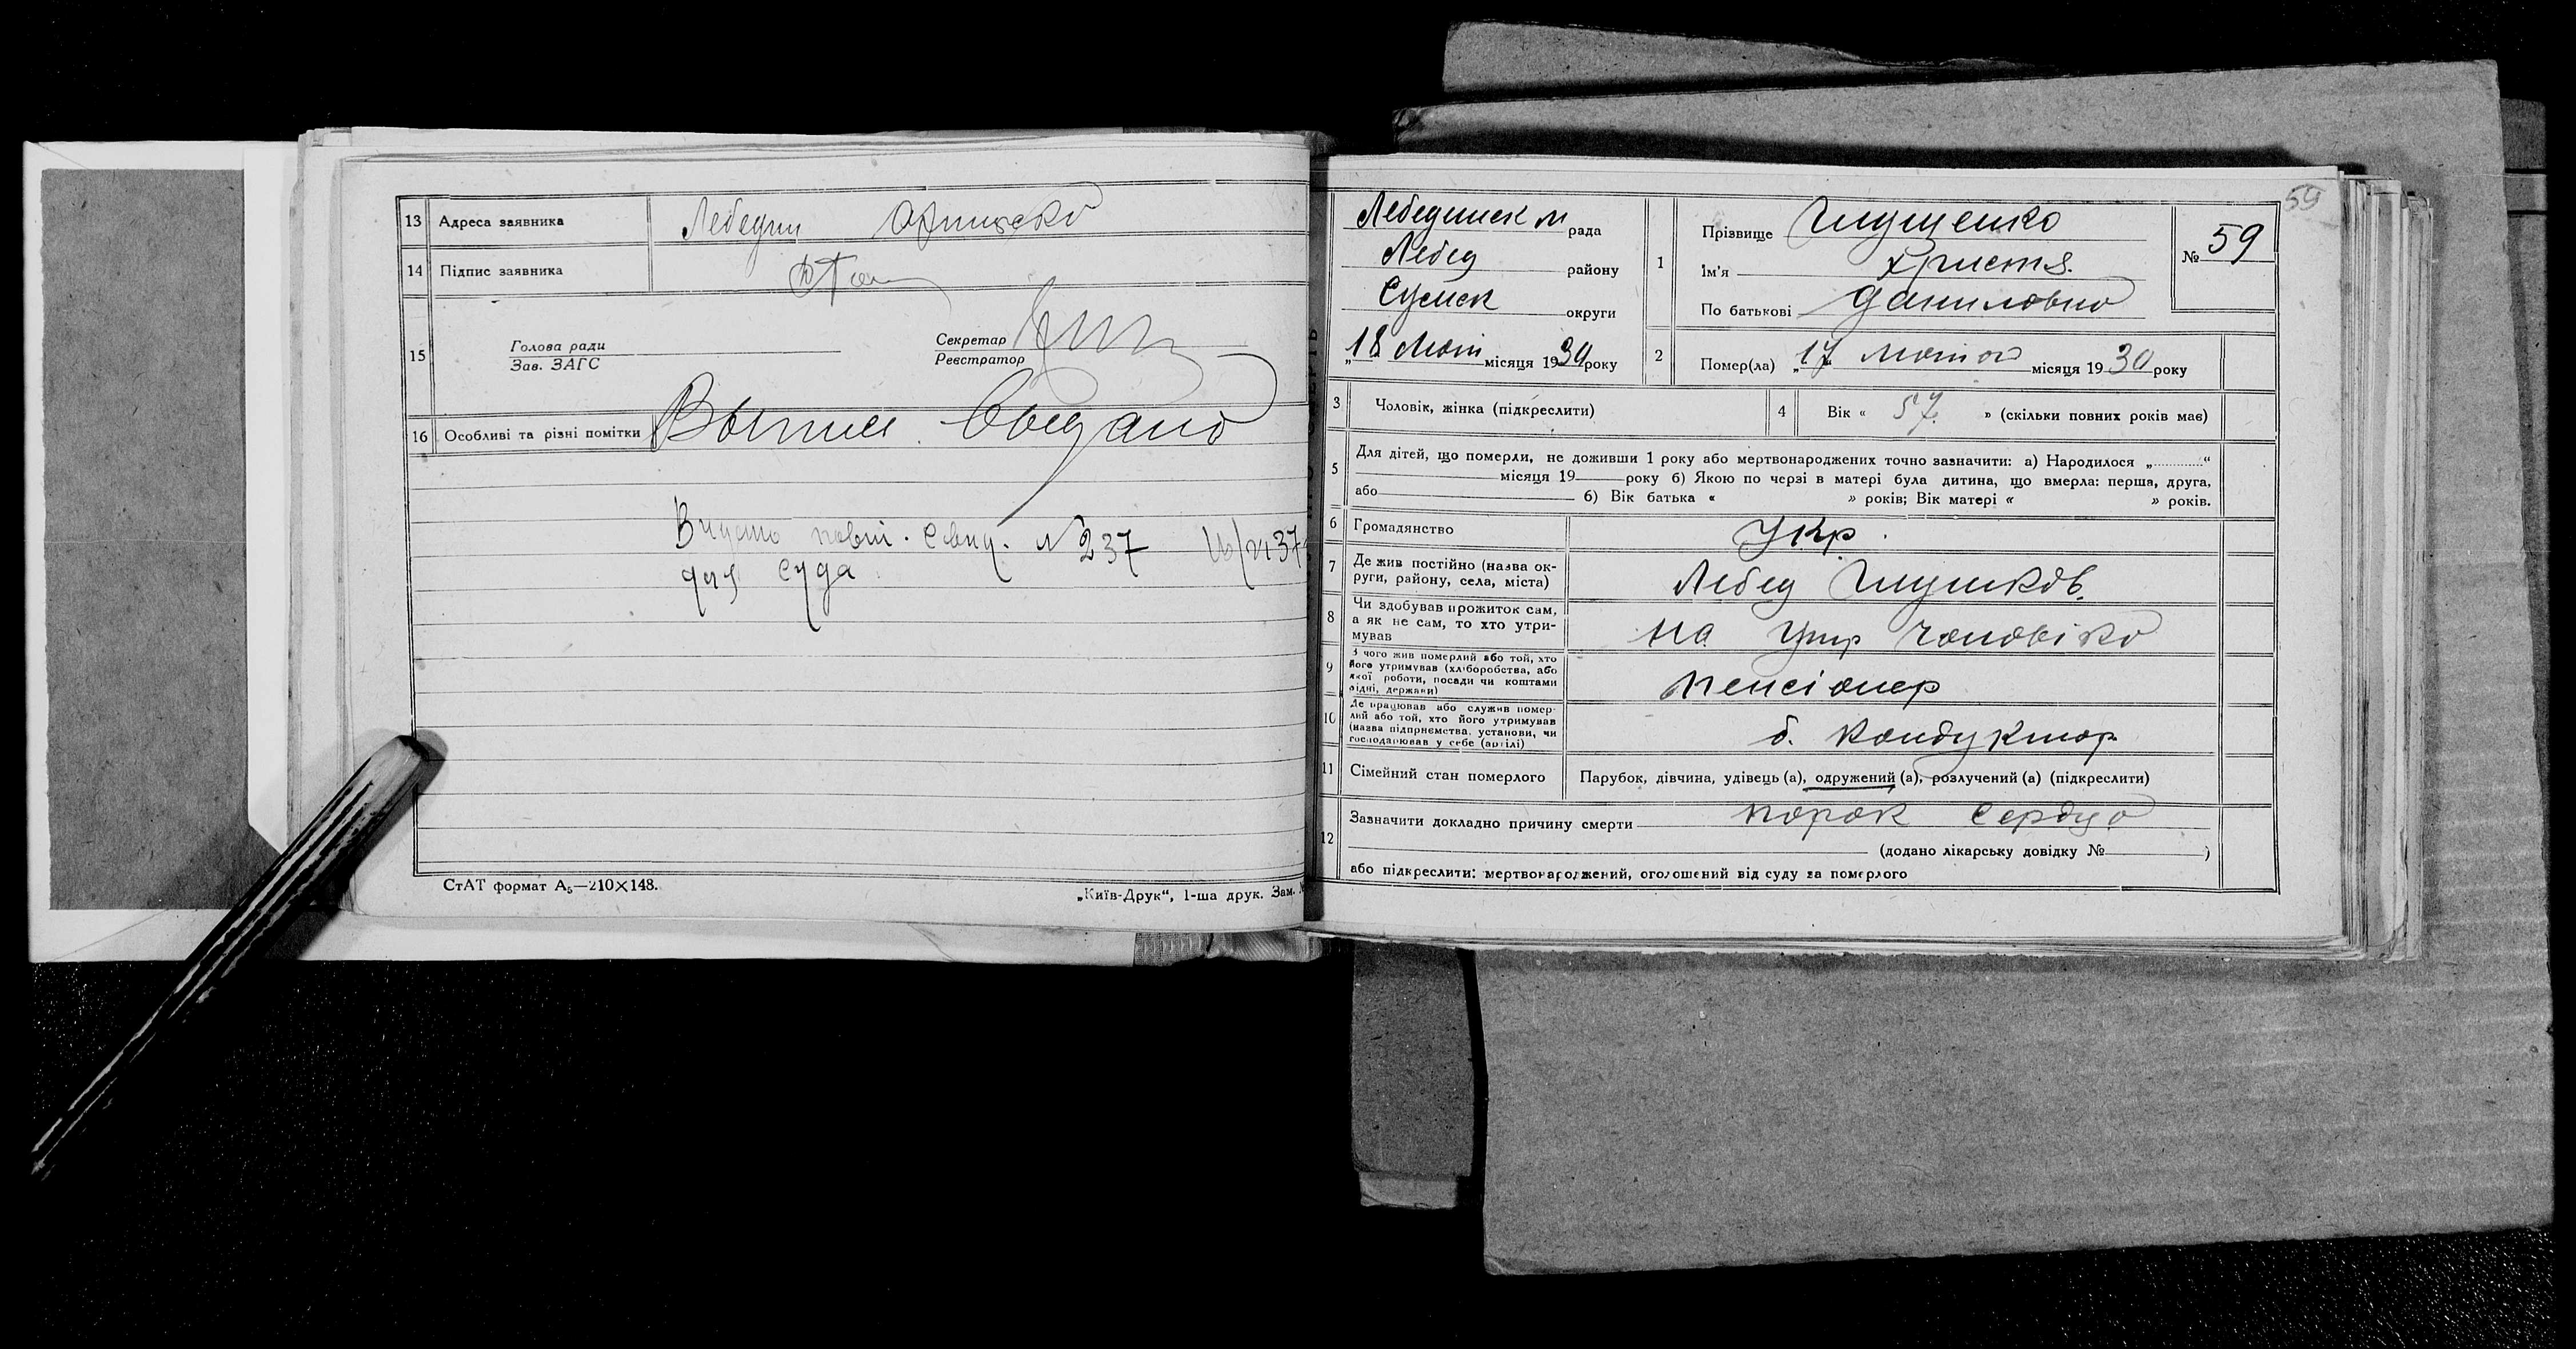 13 Адреса заявника Лебедин
14 Підпис заявника
15 Голова ради
Зав. ЗАГС
Секретар
Реєстратор
16 Особливі та різні помітки Выпись Выдано
Видано повт. Свид. № 237
для суда
СтАТ формат А₅—210×148.
„Київ-Друк“, 1-ша друк. Зам.
59
Лебединськ м рада
Лебед району
Сумск округи
„18 Лют місяця 1930 року
1 Прізвище Глущенко
Ім'я Христя
По батькові Даниловно
№ 59
2 Помер(ла) „17 Лютого місяця 1930 року
3 Чоловік, жінка (підкреслити)
4 Вік « 57 » (скільки повних років має)
5 Для дітей, що померли, не доживши 1 року або мертвонароджених точно зазначити: а) Народилося „............“
місяця 19 року б) Якою по черзі в матері була дитина, що вмерла: перша, друга,
або б) Вік батька « » років; Вік матері « » років.
6 Громадянство Укр.
7 Де жив постійно (назва ок-
руги, району, села, міста) Лебед
8 Чи здобував прожиток сам,
а як не сам, то хто утри-
мував на утр чоловіко
9 З чого жив померлий або той, хто
його утримував (хліборобства, або
якої роботи, посади чи коштами
рідні, держави) пенсіонер
10 Де працював або служив помер-
лий або той, хто його утримував
(назва підприємства, установи, чи
господарював у себе (артілі) б. кондуктор
11 Сімейний стан померлого Парубок, дівчина, удівець (а), одружений (а), розлучений (а) (підкреслити)
12 Зазначити докладно причину смерти порок сердца
(додано лікарську довідку № )
або підкреслити: мертвонароджений, оголошений від суду за померлого